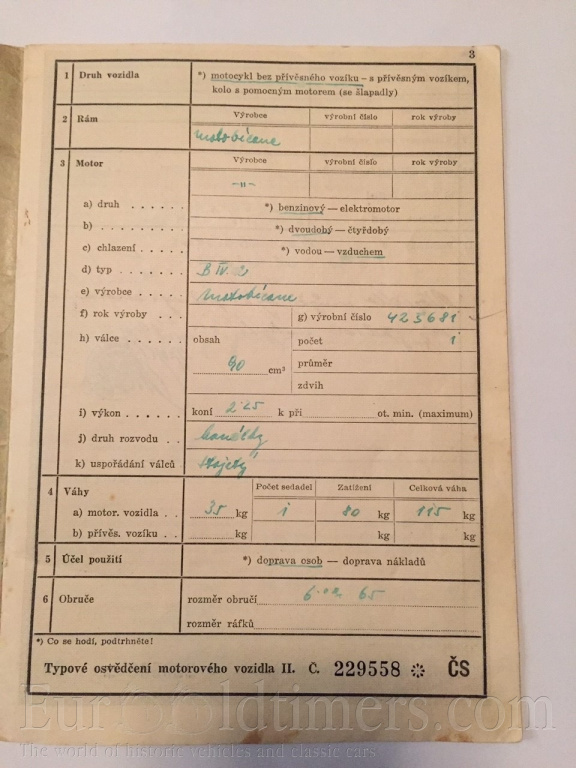 3
1 Druh vozidla *) motocykl bez přívěsného vozíku – s přívěsným vozíkem,
kolo s pomocným motorem (se šlapadly)
2 Rám Výrobce výrobní číslo rok výroby
Motobécane
3 Motor Výrobce výrobní číslo rok výroby
–"–
a) druh . . . . . . *) benzinový — elektromotor
b) . . . . . . . . . *) dvoudobý — čtyřdobý
c) chlazení . . . . . *) vodou — vzduchem
d) typ . . . . . . . B IV.
e) výrobce . . . . . Motobécane
f) rok výroby . . . . g) výrobní číslo 423681
h) válce . . . . . . obsah počet 1
90 cm³ průměr
zdvih
i) výkon . . . . . . koní 2·25 k při ot. min. (maximum)
j) druh rozvodu . .
k) uspořádání válců stojatý
4 Váhy Počet sedadel Zatížení Celková váha
a) motor. vozidla . . 35 kg 1 80 kg 115 kg
b) přívěs. vozíku . . kg kg kg
5 Účel použití *) doprava osob — doprava nákladů
6 Obruče rozměr obručí 65
rozměr ráfků
*) Co se hodí, podtrhněte!
Typové osvědčení motorového vozidla II. Č. 229558 ČS
EurOOldtimers.com
The world of historic vehicles and classic cars